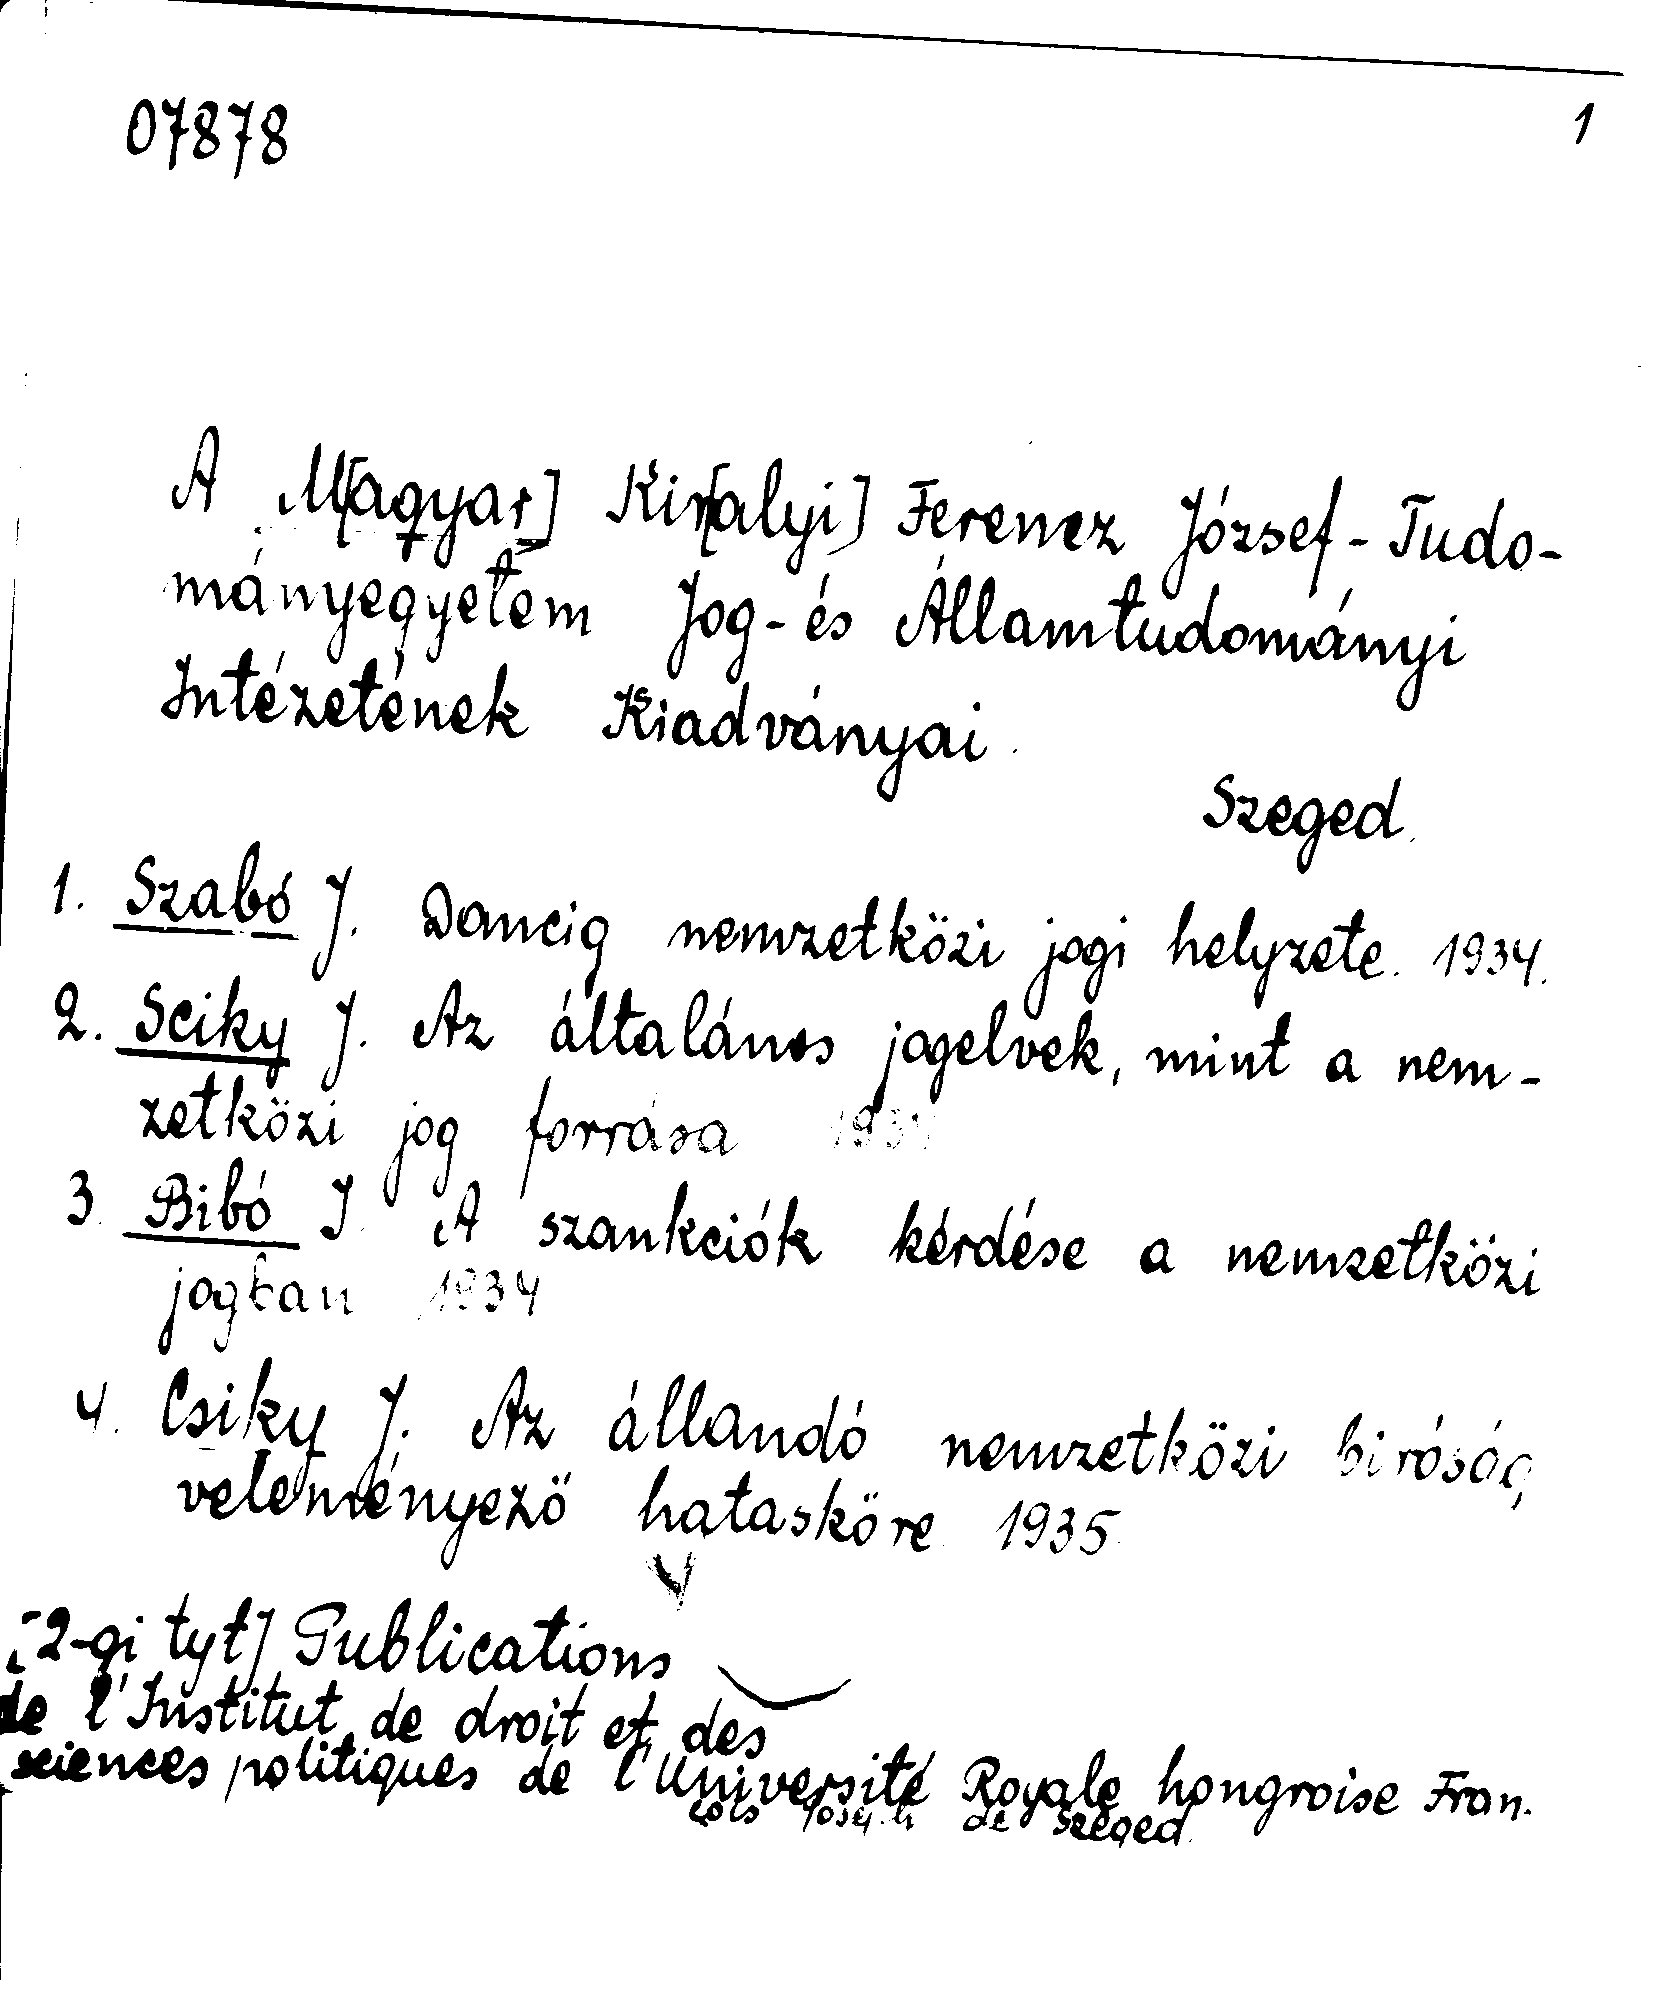 07878
1
A M[agyar] Kir[alyi] Ferencz József-Tudo-
mányegyetem Jog- és Államtudományi
Intézetének Kiadványai.
Szeged.
1. Szabó J. Dancig nemzetközi jogi helyzete. 1934.
2. Sciky J. Az általános jogelvek, mint a nem-
zetközi jog forrása
3. Bibó I. A szankciók kérdése a nemzetközi
jogban 1934
4. Csiky J. Az állandó nemzetközi biróság
veleményező hatasköre 1935.
[2-gi tyt] Publications
de l'Institut de droit et des
sciences politiques de l'Université Royale hongroise Fran.
de Szeged.